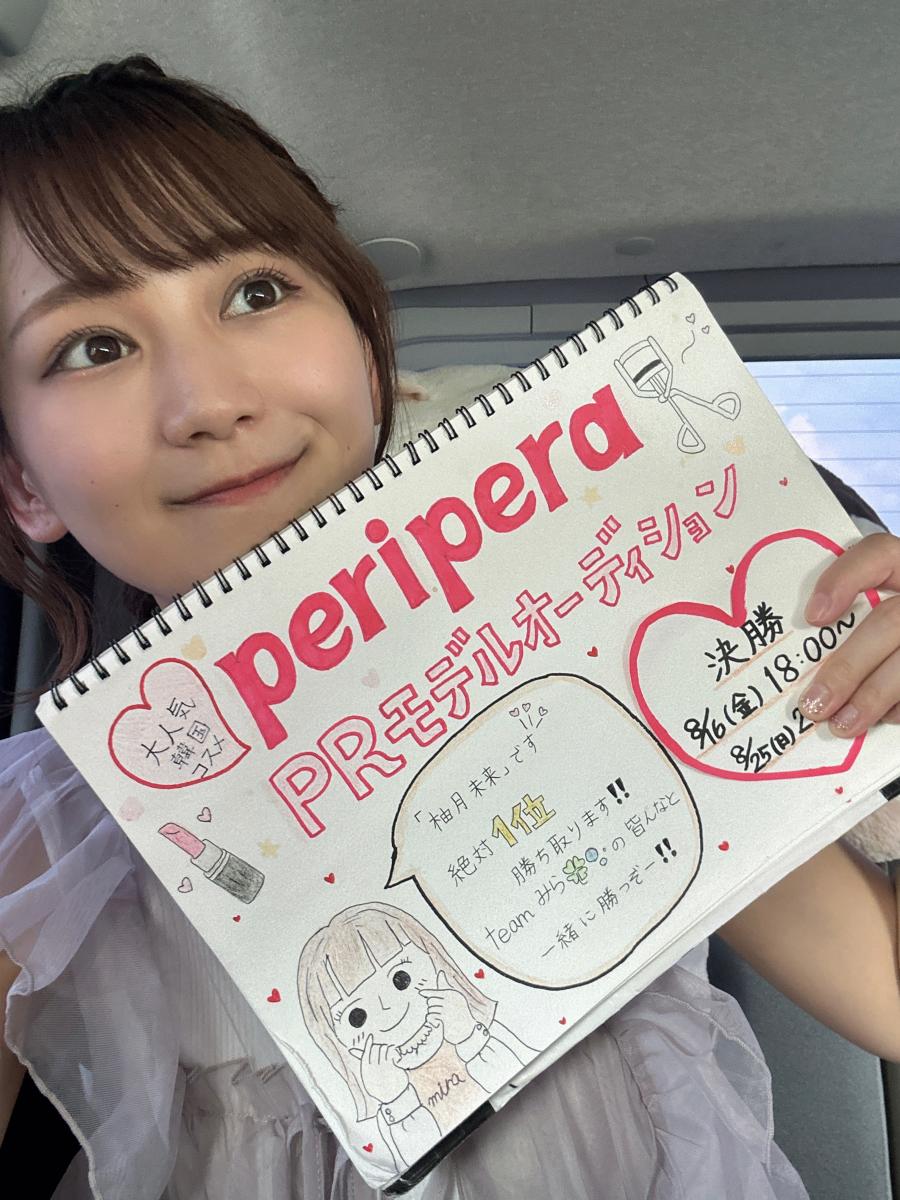 peripera
PRモデルオーディション
大人気
韓国
コスメ
決勝
8/16(金) 18:00~
8/25(日) 2
「柚月 未来」です
絶対 1位
勝ち取ります!!
team みら🍀の 皆んなと
一緒に 勝つぞー!!
mira